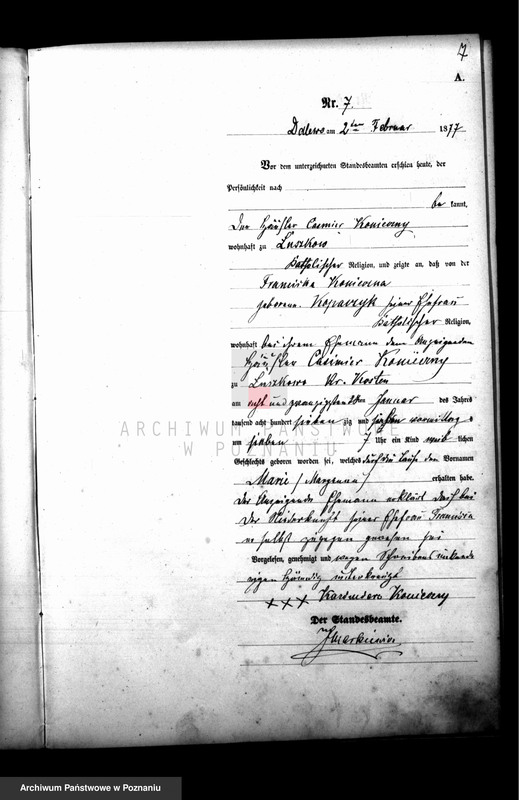 7
A.
Nr. 7.
Dalewo am 2ten Februar 1877
Vor dem unterzeichneten Standesbeamten erschien heute, der
Persönlichkeit nach
be kannt,
der Häusler Casimier Konieczny
wohnhaft zu Luszkowo
katholischer Religion, und zeigte an, daß von der
Franciska Konieczna
geborene Kopaczyk seiner Ehefrau
katholischer Religion,
wohnhaft bei ihrem Ehemann dem Anzeigenden
Häusler Casimier Konieczny
zu Luszkowo Kr. Kosten
am acht und zwanzigsten Januar des Jahres
tausend acht hundert sieben zig und sieben vormittags
um sieben 7 Uhr ein Kind weib lichen
Geschlechts geboren worden sei, welches durch die Taufe den Vornamen
Marie (Maryanna) erhalten habe.
Der Anzeigende Ehemann erklärt daß bei
der Niederkunft seiner Ehefrau Franciska
er selbst zugegen gewesen sei
Vorgelesen, genehmigt und wegen Schreibensunkunde
unterkreuzt
+++ Kazimierz Konieczny
Der Standesbeamte.
ARCHIWUM PAŃSTWOWE
W POZNANIU
Archiwum Państwowe w Poznaniu